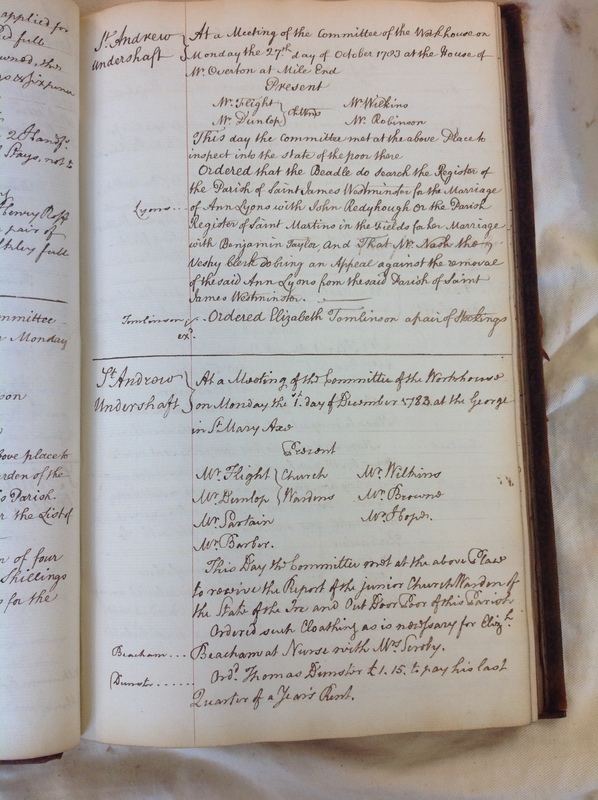 applied for
owned, the
2 Handfs.
Stays, not to
Henry Ross
a pair of
full
ommittee
n Monday
son
bove place to
arden of the
o Parish.
r the List of
n of four
Shillings
s for the
St. Andrew
Undershaft
At a Meeting of the Committee of the Workhouse on
Monday the 27th day of October 1783 at the House of
Mr. Overton at Mile End
Present
Mr. Flight Mr. Wilkins
Mr. Dunlop Ch. Wds Mr. Robinson
This day the Committee met at the above Place to
inspect into the State of the poor there
Ordered that the Beadle do search the Register of
the Parish of Saint James Westminster for the Marriage
Lyons... of Ann Lyons with John Redyhough or the Parish
Register of Saint Martins in the Fields for her Marriage
with Benjamin Taylor And That Mr. Nash the
Vestry Clerk do bring an Appeal against the removal
of the said Ann Lyons from the said Parish of Saint
James Westminster.
Tomlinson Ordered Elizabeth Tomlinson a pair of Stockings
exd.
St. Andrew
Undershaft
At a Meeting of the Committee of the Workhouse
on Monday the 1st. day of December 1783 at the George
in St. Mary Axe
Present
Mr. Flight Church Mr. Wilkins
Mr. Dunlop Wardens Mr. Browne
Mr. Sartain Mr. Hoper.
Mr. Barber.
This Day the Committee met at the above Place
to receive the Report of the junior Church Warden of
the State of the In and Out Door Poor of this Parish
Ordered such Cloathing as is necessary for Elizth.
Beacham... Beacham at Nurse with Mrs. Scroby.
Dunster...... Ordd. Thomas Dunster £1.15. to pay his last
Quarter of a Year's Rent.